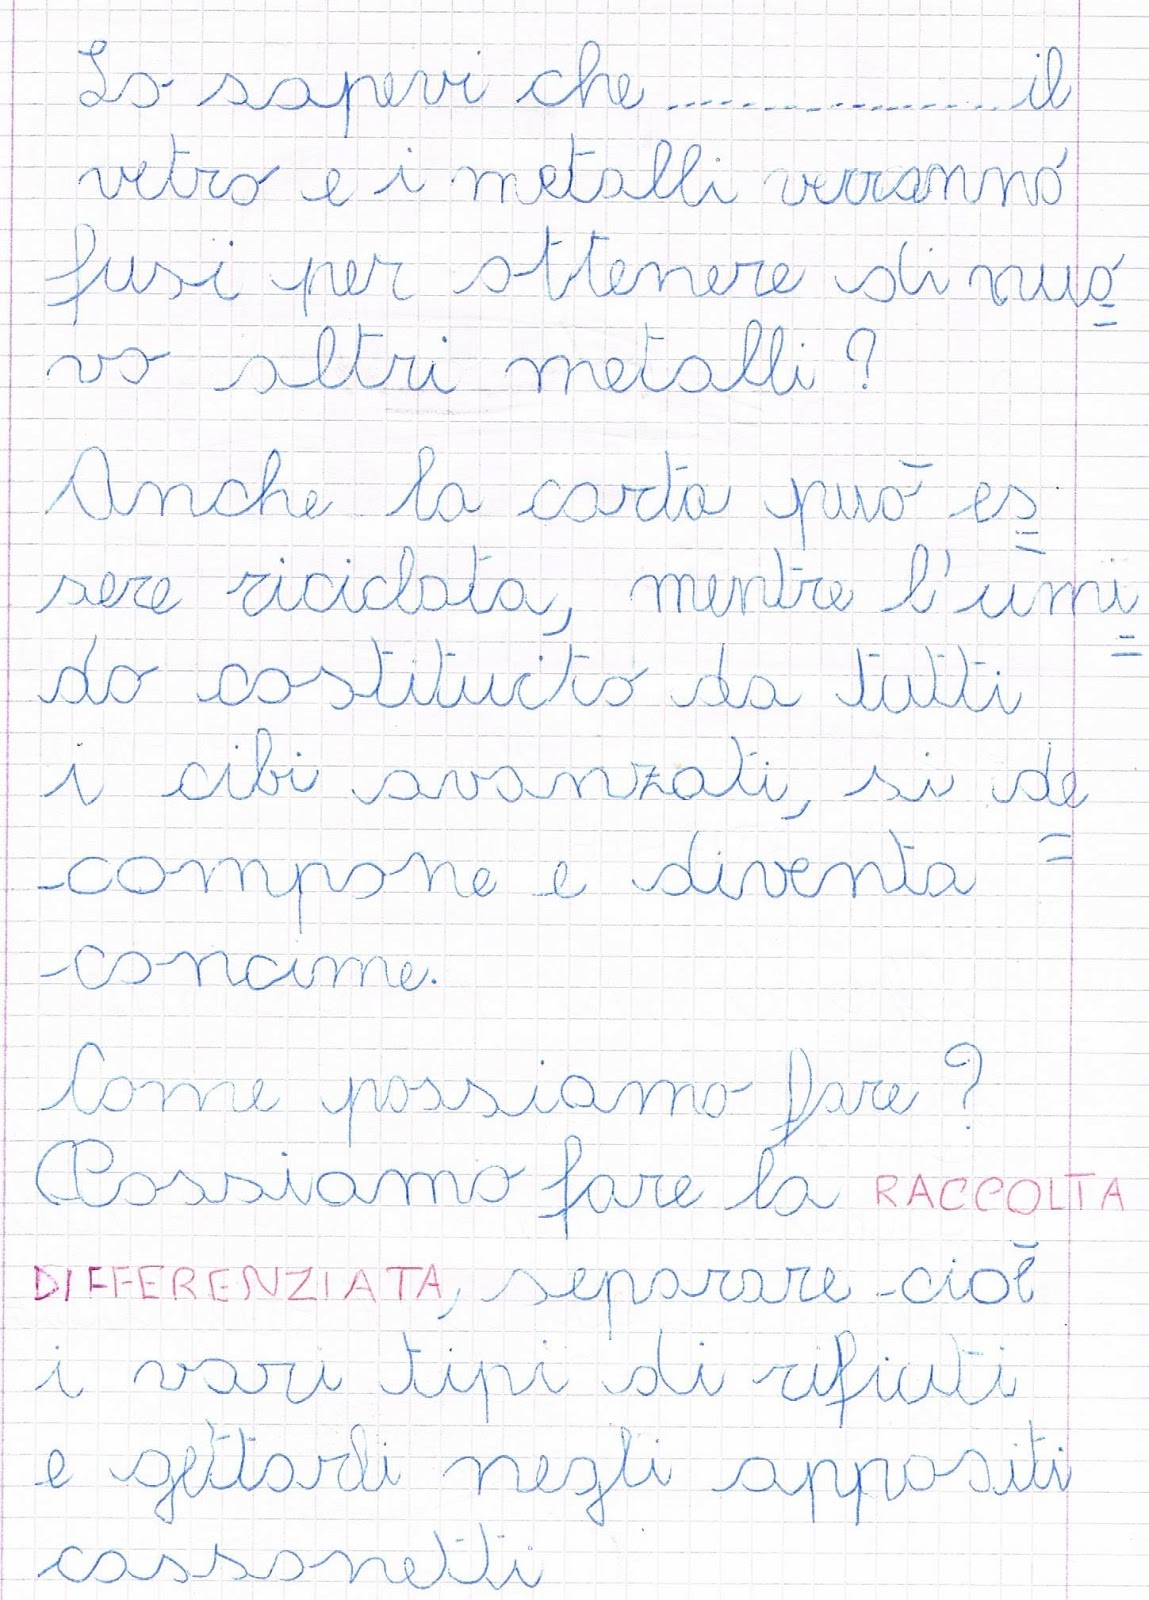 Lo sapevi che .................. il
vetro e i metalli verranno
fusi per ottenere di nuo=
vo altri metalli?
Anche la carta può es=
sere riciclata, mentre l'umi=
do costituito da tutti
i cibi avanzati, si de=
compone e diventa
concime.
Come possiamo fare?
Possiamo fare la RACCOLTA
DIFFERENZIATA, separare cioè
i vari tipi di rifiuti
e gettarli negli appositi
cassonetti